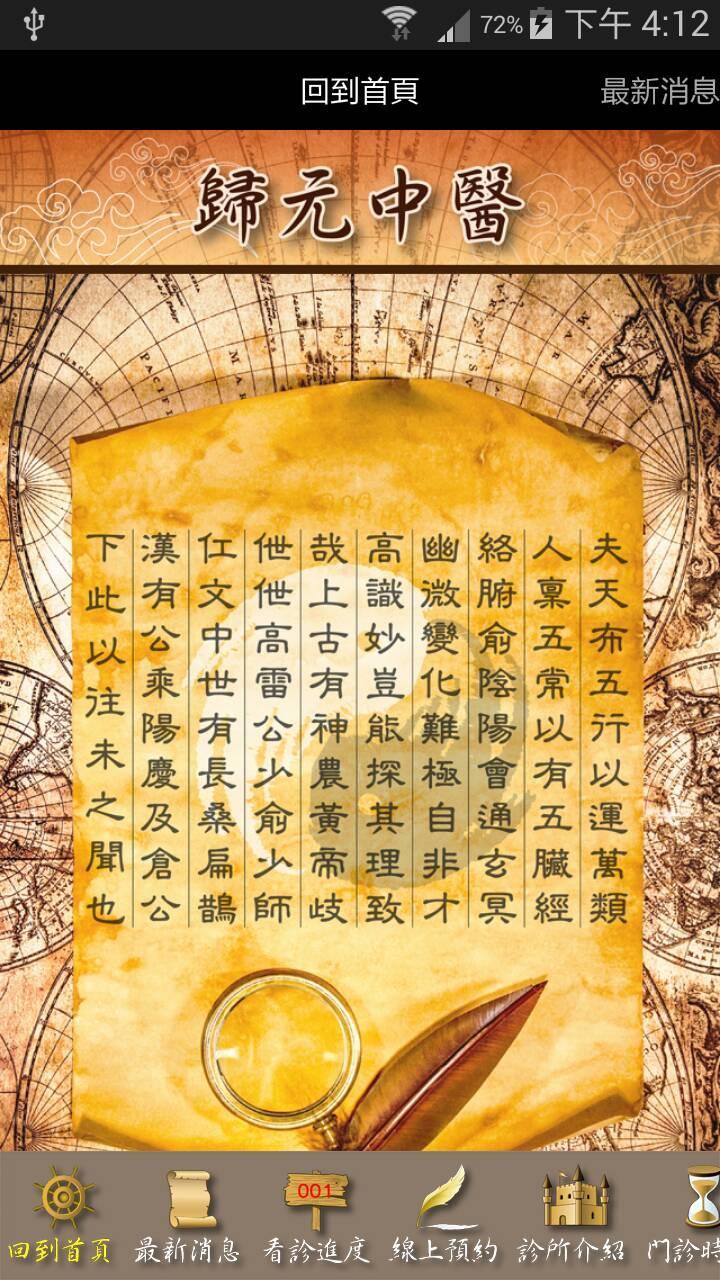 72% 下午 4:12
回到首頁 最新消息
歸元中醫
夫天布五行以運萬類
人稟五常以有五臟經
絡腑俞陰陽會通玄冥
幽微變化難極自非才
高識妙豈能探其理致
哉上古有神農黃帝歧
伯伯高雷公少俞少師
仁文中世有長桑扁鵲
漢有公乘陽慶及倉公
下此以往未之聞也
001
回到首頁 最新消息 看診進度 線上預約 診所介紹 門診時